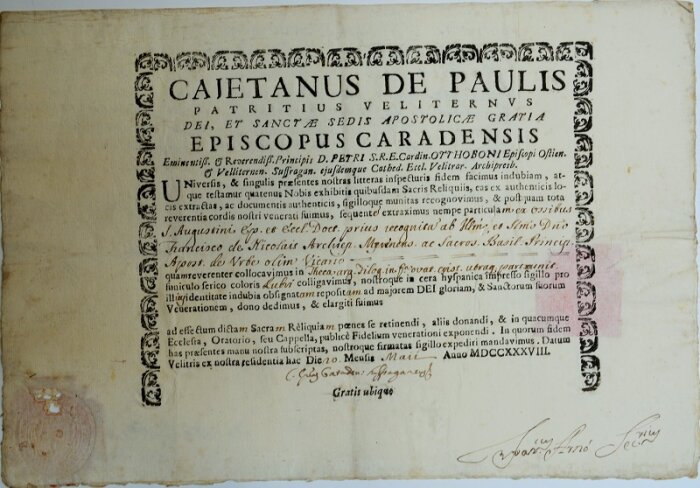 CAJETANUS DE PAULIS
PATRITIUS VELITERNVS
DEI, ET SANCTÆ SEDIS APOSTOLICÆ GRATIA
EPISCOPUS CARADENSIS
Eminentiss. & Reverendiss. Principis D. PETRI S.R.E. Cardin. OTTHOBONI Episcopi Ostien.
& Velliternen. Suffragan. ejusdemque Cathed. Eccl. Velitrar. Archipresb.
UNiversis, & singulis præsentes nostras litteras inspecturis fidem facimus indubiam, at-
que testamur quatenus Nobis exhibitis quibusdam Sacris Reliquiis, eas ex authenticis lo-
cis extractas, ac documentis authenticis, sigilloque munitas recognovimus, & post quam tota
reverentia cordis nostri venerati fuimus, sequente extraximus nempe particulam ex ossibus
S. Augustini Ep. et Eccl. Doct. prius recognita ab Illmo, et Rmo Dno
Francisco de Nicolais Archiep. ac Sacros. Basil. Princip.
Apost. de Urbe olim Vicario
quam reverenter collocavimus in Theca arg.
funiculo serico coloris Rubri colligavimus, nostroque in cera hyspanica impresso sigillo pro
illius identitate indubia obsignatam repositam ad majorem DEI gloriam, & Sanctorum suorum
Venerationem, dono dedimus, & elargiti fuimus
ad effectum dictam Sacram Reliquiam pœnes se retinendi, aliis donandi, & in quacumque
Ecclesia, Oratorio, seu Cappella, publicè Fidelium venerationi exponendi. In quorum fidem
has præsentes manu nostra subscriptas, nostroque firmatas sigillo expediri mandavimus. Datum
Velitris ex nostra residentia hac Die 20 Mensis Maii Anno MDCCXXXVIII.
Gratis ubique